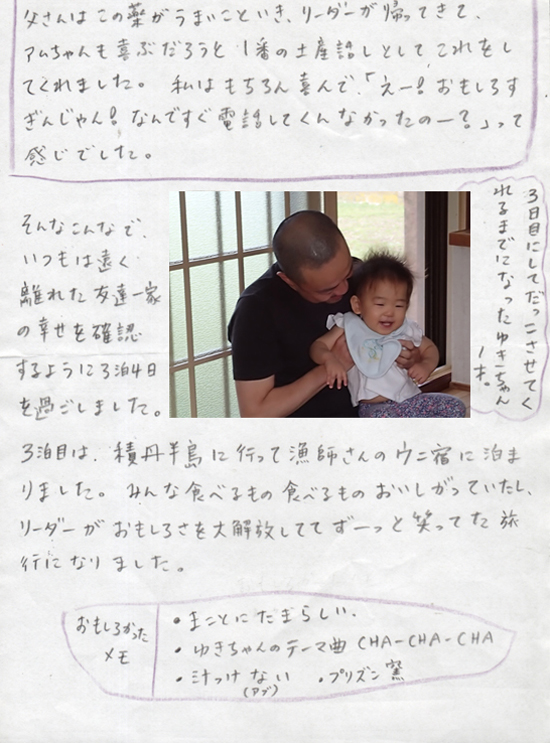 父さんはこの薬がうまいこといき、リーダーが帰ってきて、
アムちゃんも喜ぶだろうと1番の土産話しとしてこれをし
てくれました。私はもちろん喜んで、「えー!おもしろす
ぎんじゃん!なんですぐ電話してくんなかったのー?」って
感じでした。
そんなこんなで、
いつもは遠く
離れた友達一家
の幸せを確認
するように3泊4日
を過ごしました。
3日目にしてだっこさせてく
れるまでになったゆきーちゃん
3泊目は、積丹半島に行って漁師さんのウニ宿に泊ま
りました。みんな食べるもの食べるものおいしがっていたし、
リーダーがおもしろさを大解放しててずーっと笑ってた旅
行になりました。
おもしろかった
メモ
・まことにたまらしい、
・ゆきちゃんのテーマ曲 CHA-CHA-CHA
・汁っけない ・プリズン窯
(アブ)